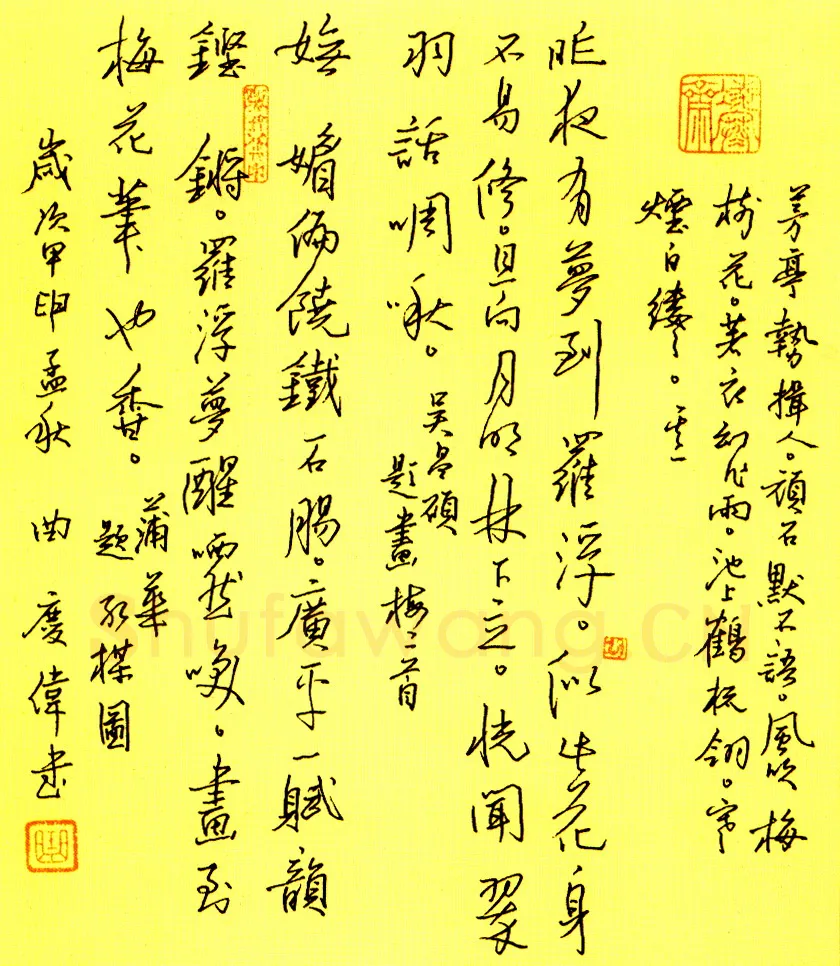 茅亭勢揖人。頑石默不語。風吹梅
樹花。著衣幻作雨。池上鶴梳翎。寒
煙白縷〻。其一
昨夜有夢到羅浮。似此花身
不易修。且向月明林下立。恍聞翠
羽話啁啾。吳昌碩
題畫梅二首
嫵媚偏饒鐵石腸。廣平一賦韻
鏗鏘。羅浮夢醒哂然。畫到
梅花筆也香。蒲華
題紅楳圖
歲次甲申孟秋 曲慶偉書
Shufawang.cn